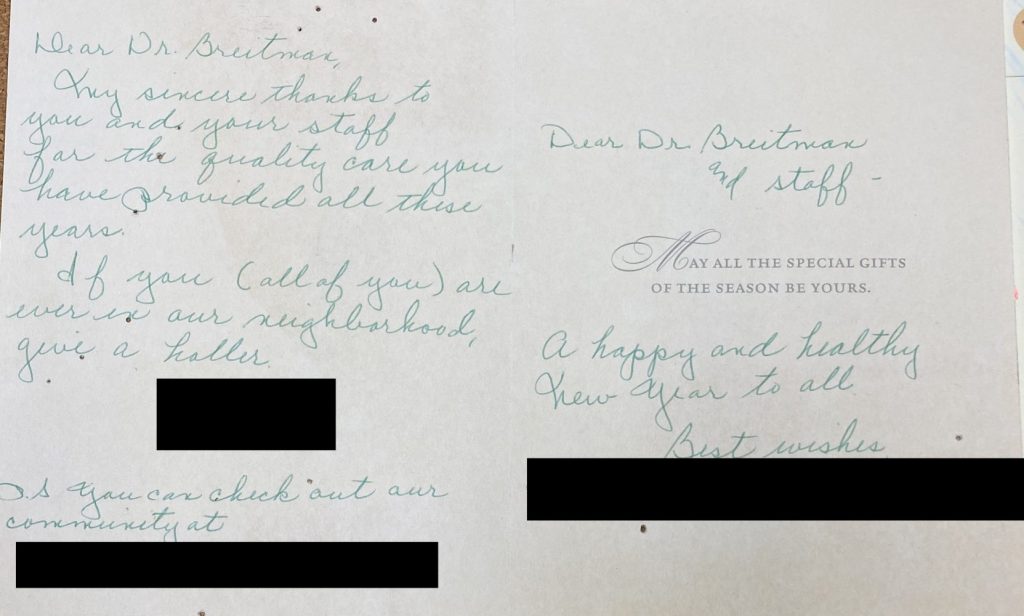 Dear Dr. Breitman,
My sincere thanks to
you and your staff
for the quality care you
have provided all these
years.
If you (all of you) are
ever in our neighborhood,
give a holler.
P.S You can check out our
community at
Dear Dr. Breitman
and staff -
May all the special gifts
of the season be yours.
A happy and healthy
New Year to all
Best wishes